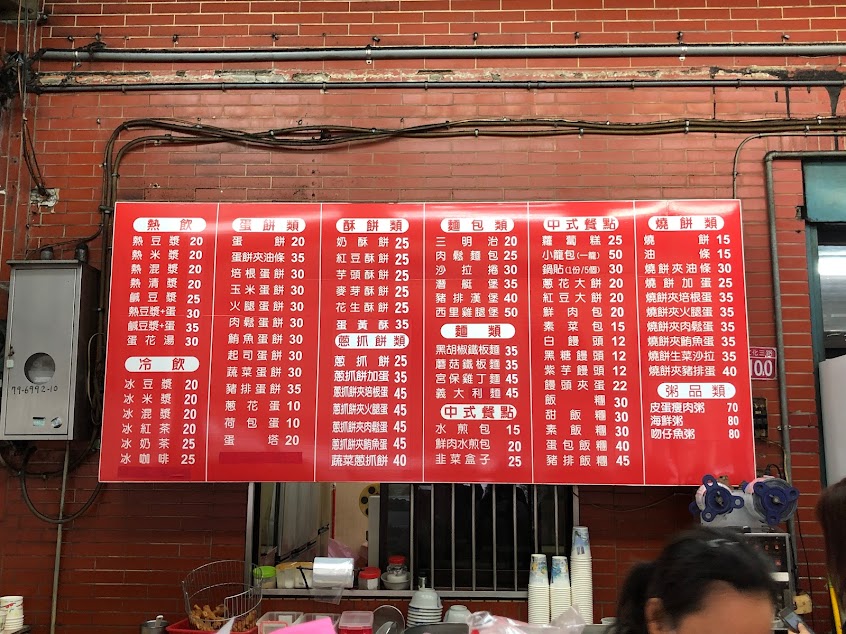 熱飲
熱豆漿 20
熱米漿 20
熱混漿 20
熱清漿 20
鹹豆漿 25
熱豆漿+蛋 30
鹹豆漿+蛋 35
蛋花湯 30
冷飲
冰豆漿 20
冰米漿 20
冰混漿 20
冰紅茶 20
冰奶茶 25
冰咖啡 25
蛋餅類
蛋餅 20
蛋餅夾油條 35
培根蛋餅 30
玉米蛋餅 30
火腿蛋餅 30
肉鬆蛋餅 30
鮪魚蛋餅 30
起司蛋餅 30
蔬菜蛋餅 30
豬排蛋餅 35
蔥花蛋 10
荷包蛋 10
蛋塔 20
酥餅類
奶酥餅 25
紅豆酥餅 25
芋頭酥餅 25
麥芽酥餅 25
花生酥餅 25
蛋黃酥 35
蔥抓餅類
蔥抓餅 25
蔥抓餅加蛋 35
蔥抓餅夾培根蛋 45
蔥抓餅夾火腿蛋 45
蔥抓餅夾肉鬆蛋 45
蔥抓餅夾鮪魚蛋 45
蔬菜蔥抓餅 40
麵包類
三明治 20
肉鬆麵包 25
沙拉捲 30
潛艇堡 35
豬排漢堡 40
西里雞腿堡 50
麵類
黑胡椒鐵板麵 35
蘑菇鐵板麵 35
宮保雞丁麵 45
義大利麵 45
中式餐點
水煎包 15
鮮肉水煎包 20
韭菜盒子 25
中式餐點
蘿蔔糕 25
小籠包(一籠) 50
鍋貼(1份/5個) 30
蔥花大餅 20
紅豆大餅 20
鮮肉包 20
素菜包 15
白饅頭 12
黑糖饅頭 12
紫芋饅頭 12
饅頭夾蛋 22
飯糰 30
甜飯糰 30
素飯糰 30
蛋包飯糰 40
豬排飯糰 45
燒餅類
燒餅 15
油條 15
燒餅夾油條 30
燒餅加蛋 25
燒餅夾培根蛋 35
燒餅夾火腿蛋 35
燒餅夾肉鬆蛋 35
燒餅夾鮪魚蛋 35
燒餅生菜沙拉 35
燒餅夾豬排蛋 40
粥品類
皮蛋瘦肉粥 70
海鮮粥 80
吻仔魚粥 80
79-6992-10
100